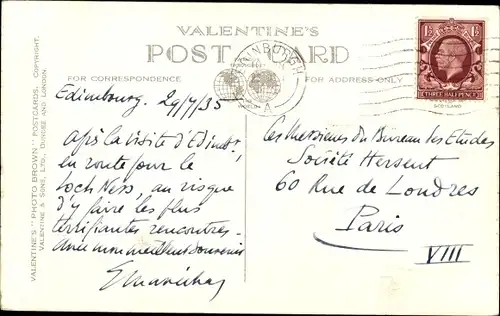 VALENTINE'S
POST CARD
FOR CORRESPONDENCE
FOR ADDRESS ONLY
EDINBURGH
A
1½ 1½
THREE HALFPENCE
SCOTLAND
VALENTINE'S "PHOTO BROWN" POSTCARDS. COPYRIGHT.
VALENTINE & SONS, LTD., DUNDEE AND LONDON.
Edimbourg. 29/7/35
Après la visite d'Edimb!,
en route pour le
Loch Ness, au risque
d'y faire les plus
terrifiantes rencontres.
Amen mon meilleur souvenir
Les Messieurs du Bureau des Etudes
Société Hersent
60 Rue de Londres
Paris
VIII